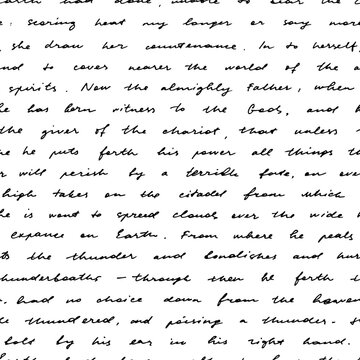 earth had done, unable to bear the
scoring heat any longer or say more
she draw her countenance. In to herself,
and to cover nearer the world of the
spirits. Now the almighty Father, when
he has born witness to the Gods, and
the giver of the chariot, that unless
he puts forth his power all things
will perish by a terrible fate, on
high takes on the citadel from which
he is wont to spreed clouds over the wide
expance on Earth. From where he peals
the thunder and bondishes and
thunderboaths – through then he forth
had no choice down from the heaven
thundered, and poising a thunder-
bolt by his ear in his right hand.